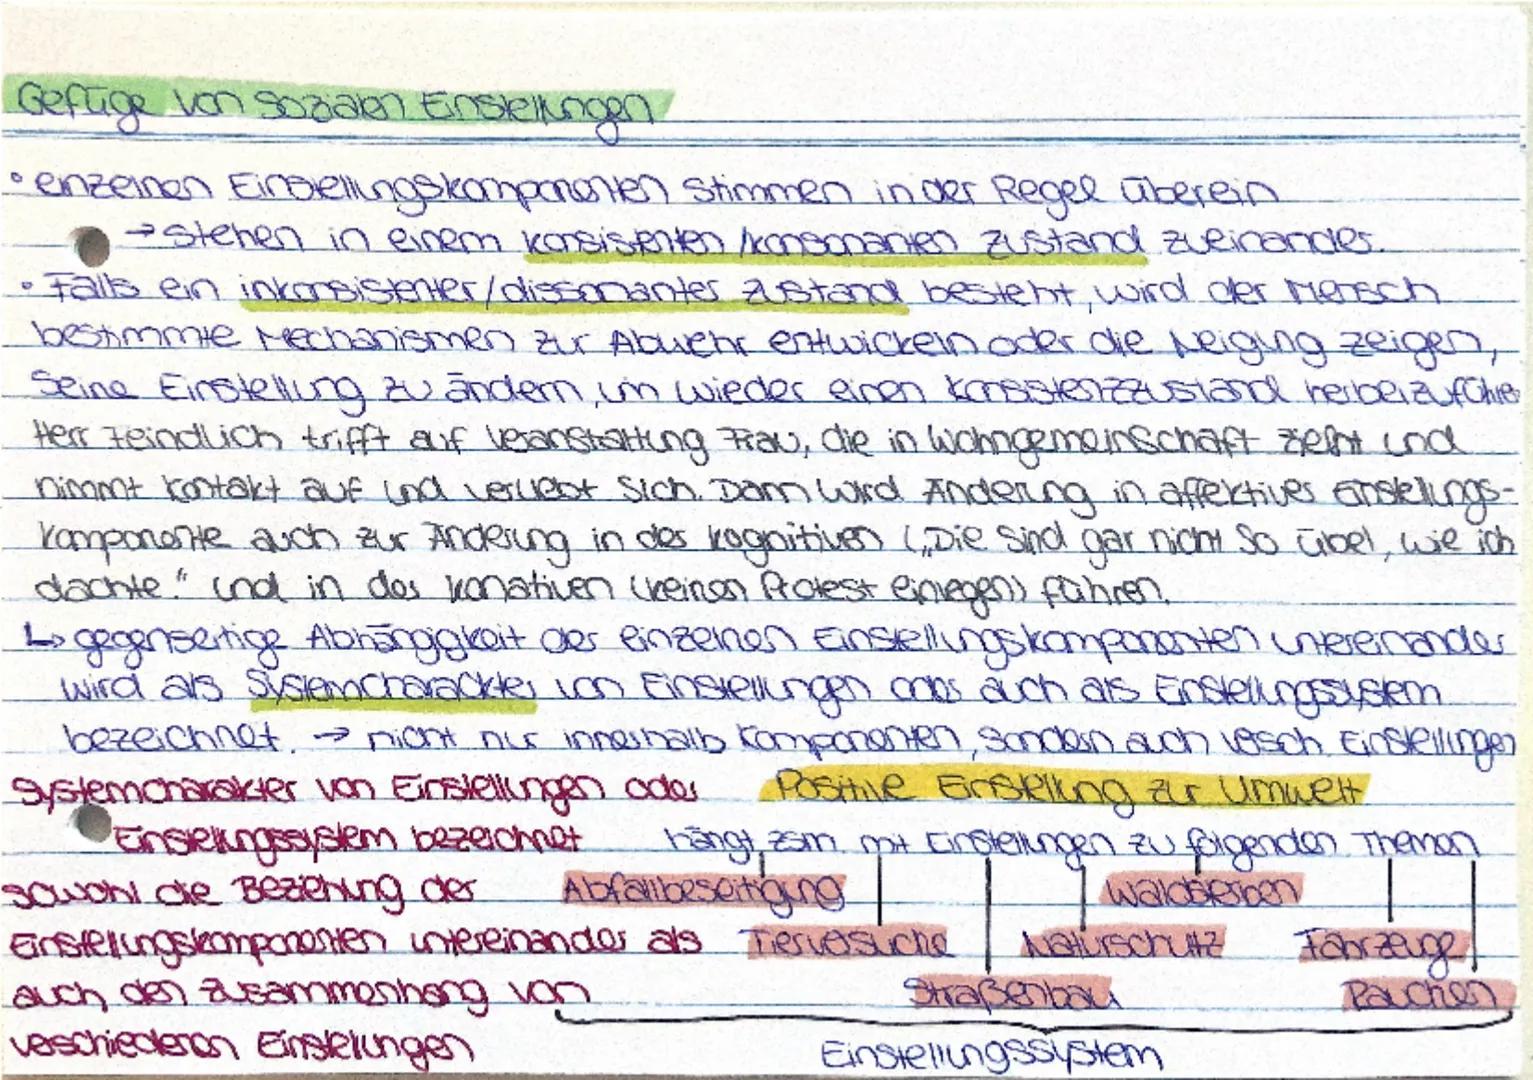 Gefüge von sozialen Einstellungen
• einzelnen Einstellungskomponenten stimmen in der Regel überein
→ stehen in einem konsistenten/konsonanten Zustand zueinander.
• Falls ein inkonsistenter/dissonanter Zustand besteht, wird der Mensch
bestimmte Mechanismen zur Abwehr entwickeln oder die Neigung zeigen,
seine Einstellung zu ändern, um wieder einen Konsistenzzustand herbeizuführe
Herr Feindlich trifft auf Veranstaltung Frau, die in Wohngemeinschaft zieht und
nimmt Kontakt auf und verliebt sich. Dann wird Änderung in affektiver Einstellungs-
komponente auch zur Änderung in der kognitiven („Die sind gar nicht so übel, wie ich
dachte." und in der konativen (keinen Protest einlegen) führen.
↳ gegenseitige Abhängigkeit der einzelnen Einstellungskomponenten untereinander
wird als Systemcharackter von Einstellungen oder auch als Einstellungssystem
bezeichnet. → nicht nur innerhalb Komponenten, sondern auch versch. Einstellungen
Systemcharakter von Einstellungen oder
Positive Einstellung zur Umwelt
Einstellungssystem bezeichnet
hängt zsm. mit Einstellungen zu folgenden Themen
sowohl die Beziehung der
Abfallbeseitigung
Waldsterben
Einstellungskomponenten untereinander als
Tierversuche
Naturschutz
Fahrzeuge
auch den Zusammenhang von
Straßenbau
Rauchen
verschiedenen Einstellungen
Einstellungssystem